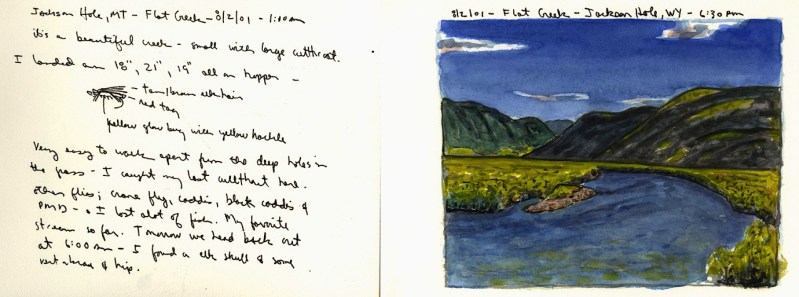 Jackson Hole, MT - Flat Creek - 8/2/01 - 1:10am
it's a beautiful creek - small with large cutthroat.
I landed an 18", 21", 19" all on hopper -
tan/brown elk hair
red tag
yellow glow bug with yellow hackle
Very easy to wade apart from the deep holes in
the grass - I caught my last cutthroat here.
other flies; crane fly, caddis, black caddis &
PMD - I lost alot of fish. My favorite
stream so far. Tomorrow we head back out
at 6:00am - I found a elk skull & some
vertebrae & hip.
8/2/01 - Flat Creek - Jackson Hole, WY - 6:30pm